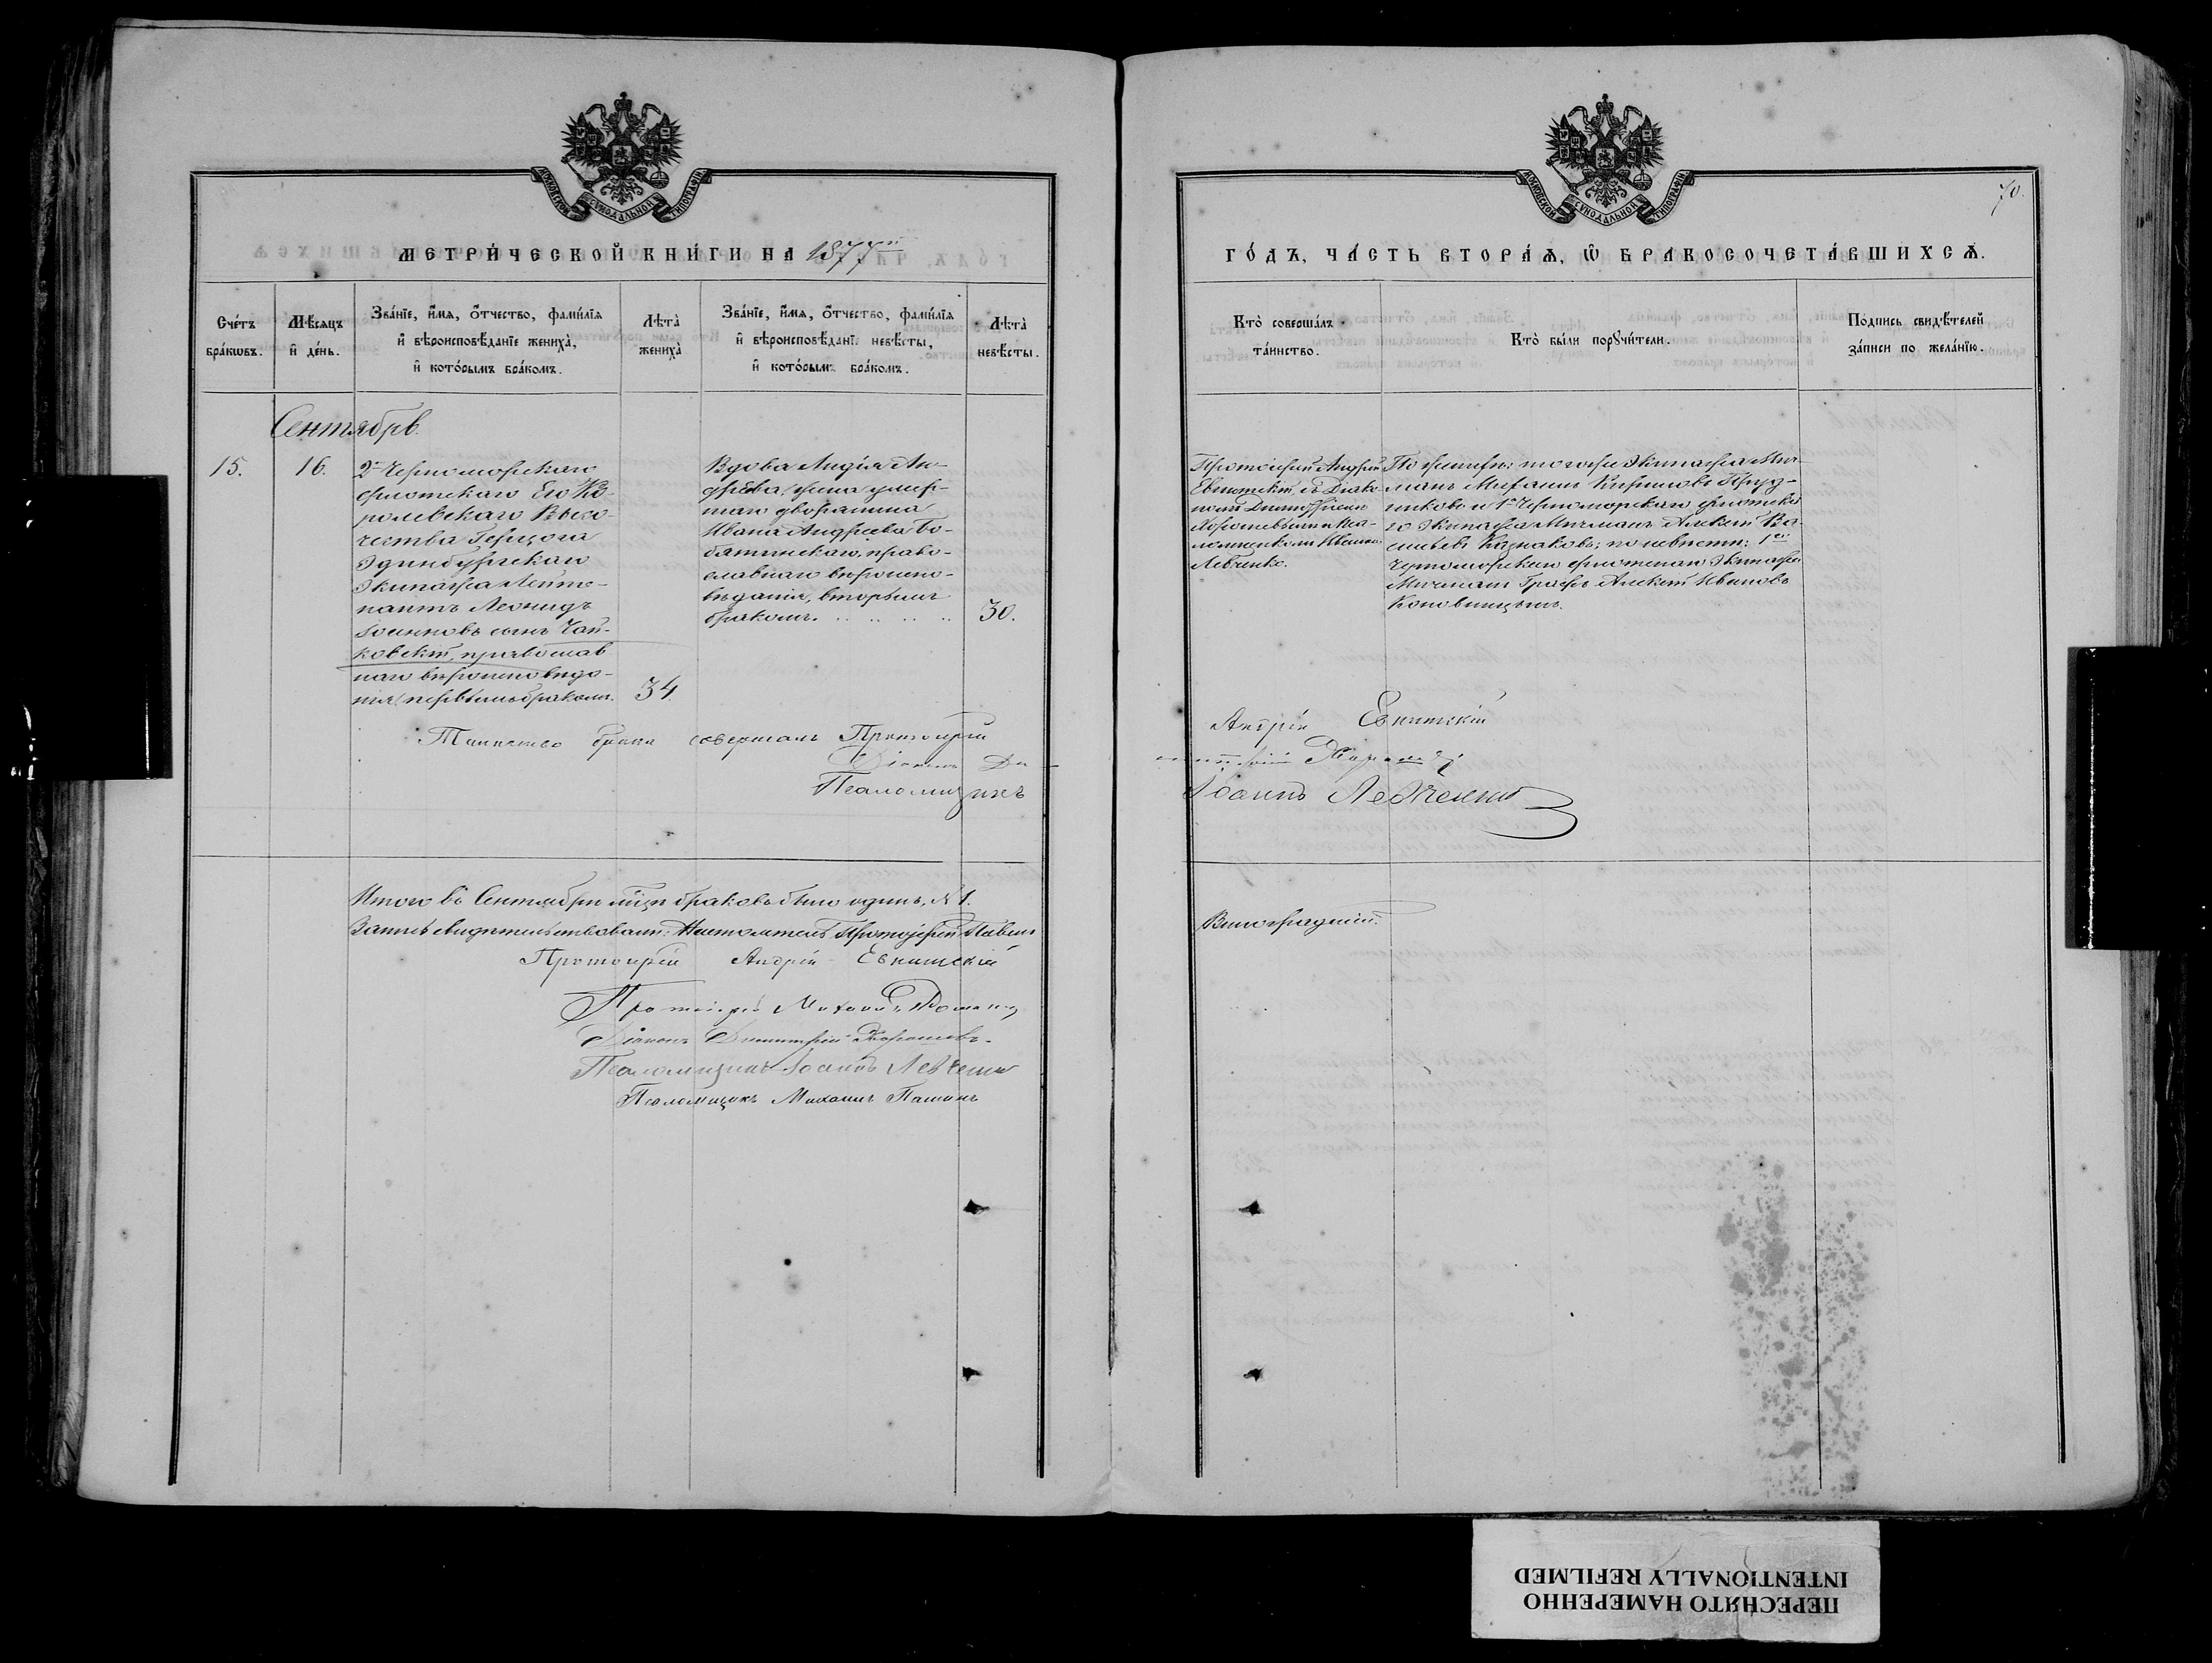 МОСКОВСКОЙ СѴНОДАЛЬНОЙ ТИПОГРАФІИ
МЕТРИ́ЧЕСКОЙ КНИ́ГИ НА 1877й
Сче́тъ бра́кωвъ.
Мѣ́сяцъ и҆ де́нь.
Зва́нїе, и҆́мя, ѻ҆́тчество, фами́лїя
и҆ вѣроисповѣ́данїе жениха̀,
и҆ кото́рымъ бра́комъ.
Лѣта̀ жениха̀
Зва́нїе, и҆́мя, ѻ҆́тчество, фами́лїя
и҆ вѣроисповѣ́данїе невѣ́сты,
и҆ кото́рымъ бра́комъ.
Лѣта̀ невѣ́сты.
Сентябрь.
15.
16.
2го Черноморскаго
флотскаго Его Ко-
ролевскаго Высо-
чества Герцога
Эдинбургскаго
Экипажа Лейте-
нантъ Леонидъ
Іоанновъ сынъ Чай-
ковскій, православ
наго вѣроисповѣда-
нія, первымъ бракомъ.
34.
Вдова Лидія Ан-
дрѣева, жена умер-
шаго дворянина
Ивана Андреева Бо-
гдатинскаго, право-
славнаго вѣроиспо-
вѣданія, вторымъ
бракомъ.
30.
Таинство брака совершалъ Протоіерей
Діаконъ Ди-
Псаломщикъ
Итого въ Сентябрѣ мцѣ браковъ было одинъ, № 1.
Запись свидѣтельствовали: Настоятель Протоіерей Павелъ
Протоіерей Андрей Евнитскій
Протоіерей Михаилъ
Діаконъ Димитрій Хорошевъ.
Псаломщикъ Іоаннъ Левченко
Псаломщикъ Михаилъ
70.
МОСКОВСКОЙ СѴНОДАЛЬНОЙ ТИПОГРАФІИ
ГО́ДЪ, ЧА́СТЬ ВТОРА́Я, Ѽ БРАКОСОЧЕТА́ВШИХСЯ.
Кто̀ соверша́лъ
та́инство.
Кто̀ бы́ли порꙋчи́тели.
По́дпись свидѣ́телей
за́писи по жела́нїю.
Протоіерей Андрей
Евнитскій, съ Діако-
номъ Димитріемъ
Хорошевымъ и Пса-
ломщикомъ Иваномъ
Левченко.
По женихѣ: того же Экипажа Мич-
манъ Михаилъ Кириловъ Пруд-
никовъ и 1го Черноморскаго флотска-
го Экипажа Мичманъ Алексѣй Ва-
сильевъ Казнаковъ; по невѣстѣ: 1го
Черноморскаго флотскаго Экипажа
Мичманъ Графъ Алексѣй Ивановъ
Коновницынъ.
Андрей Евнитскій
митрій Хорошевъ
Іоаннъ Левченко
Виноградскій.
ПЕРЕСНЯТО НАМЕРЕННО
INTENTIONALLY REFILMED